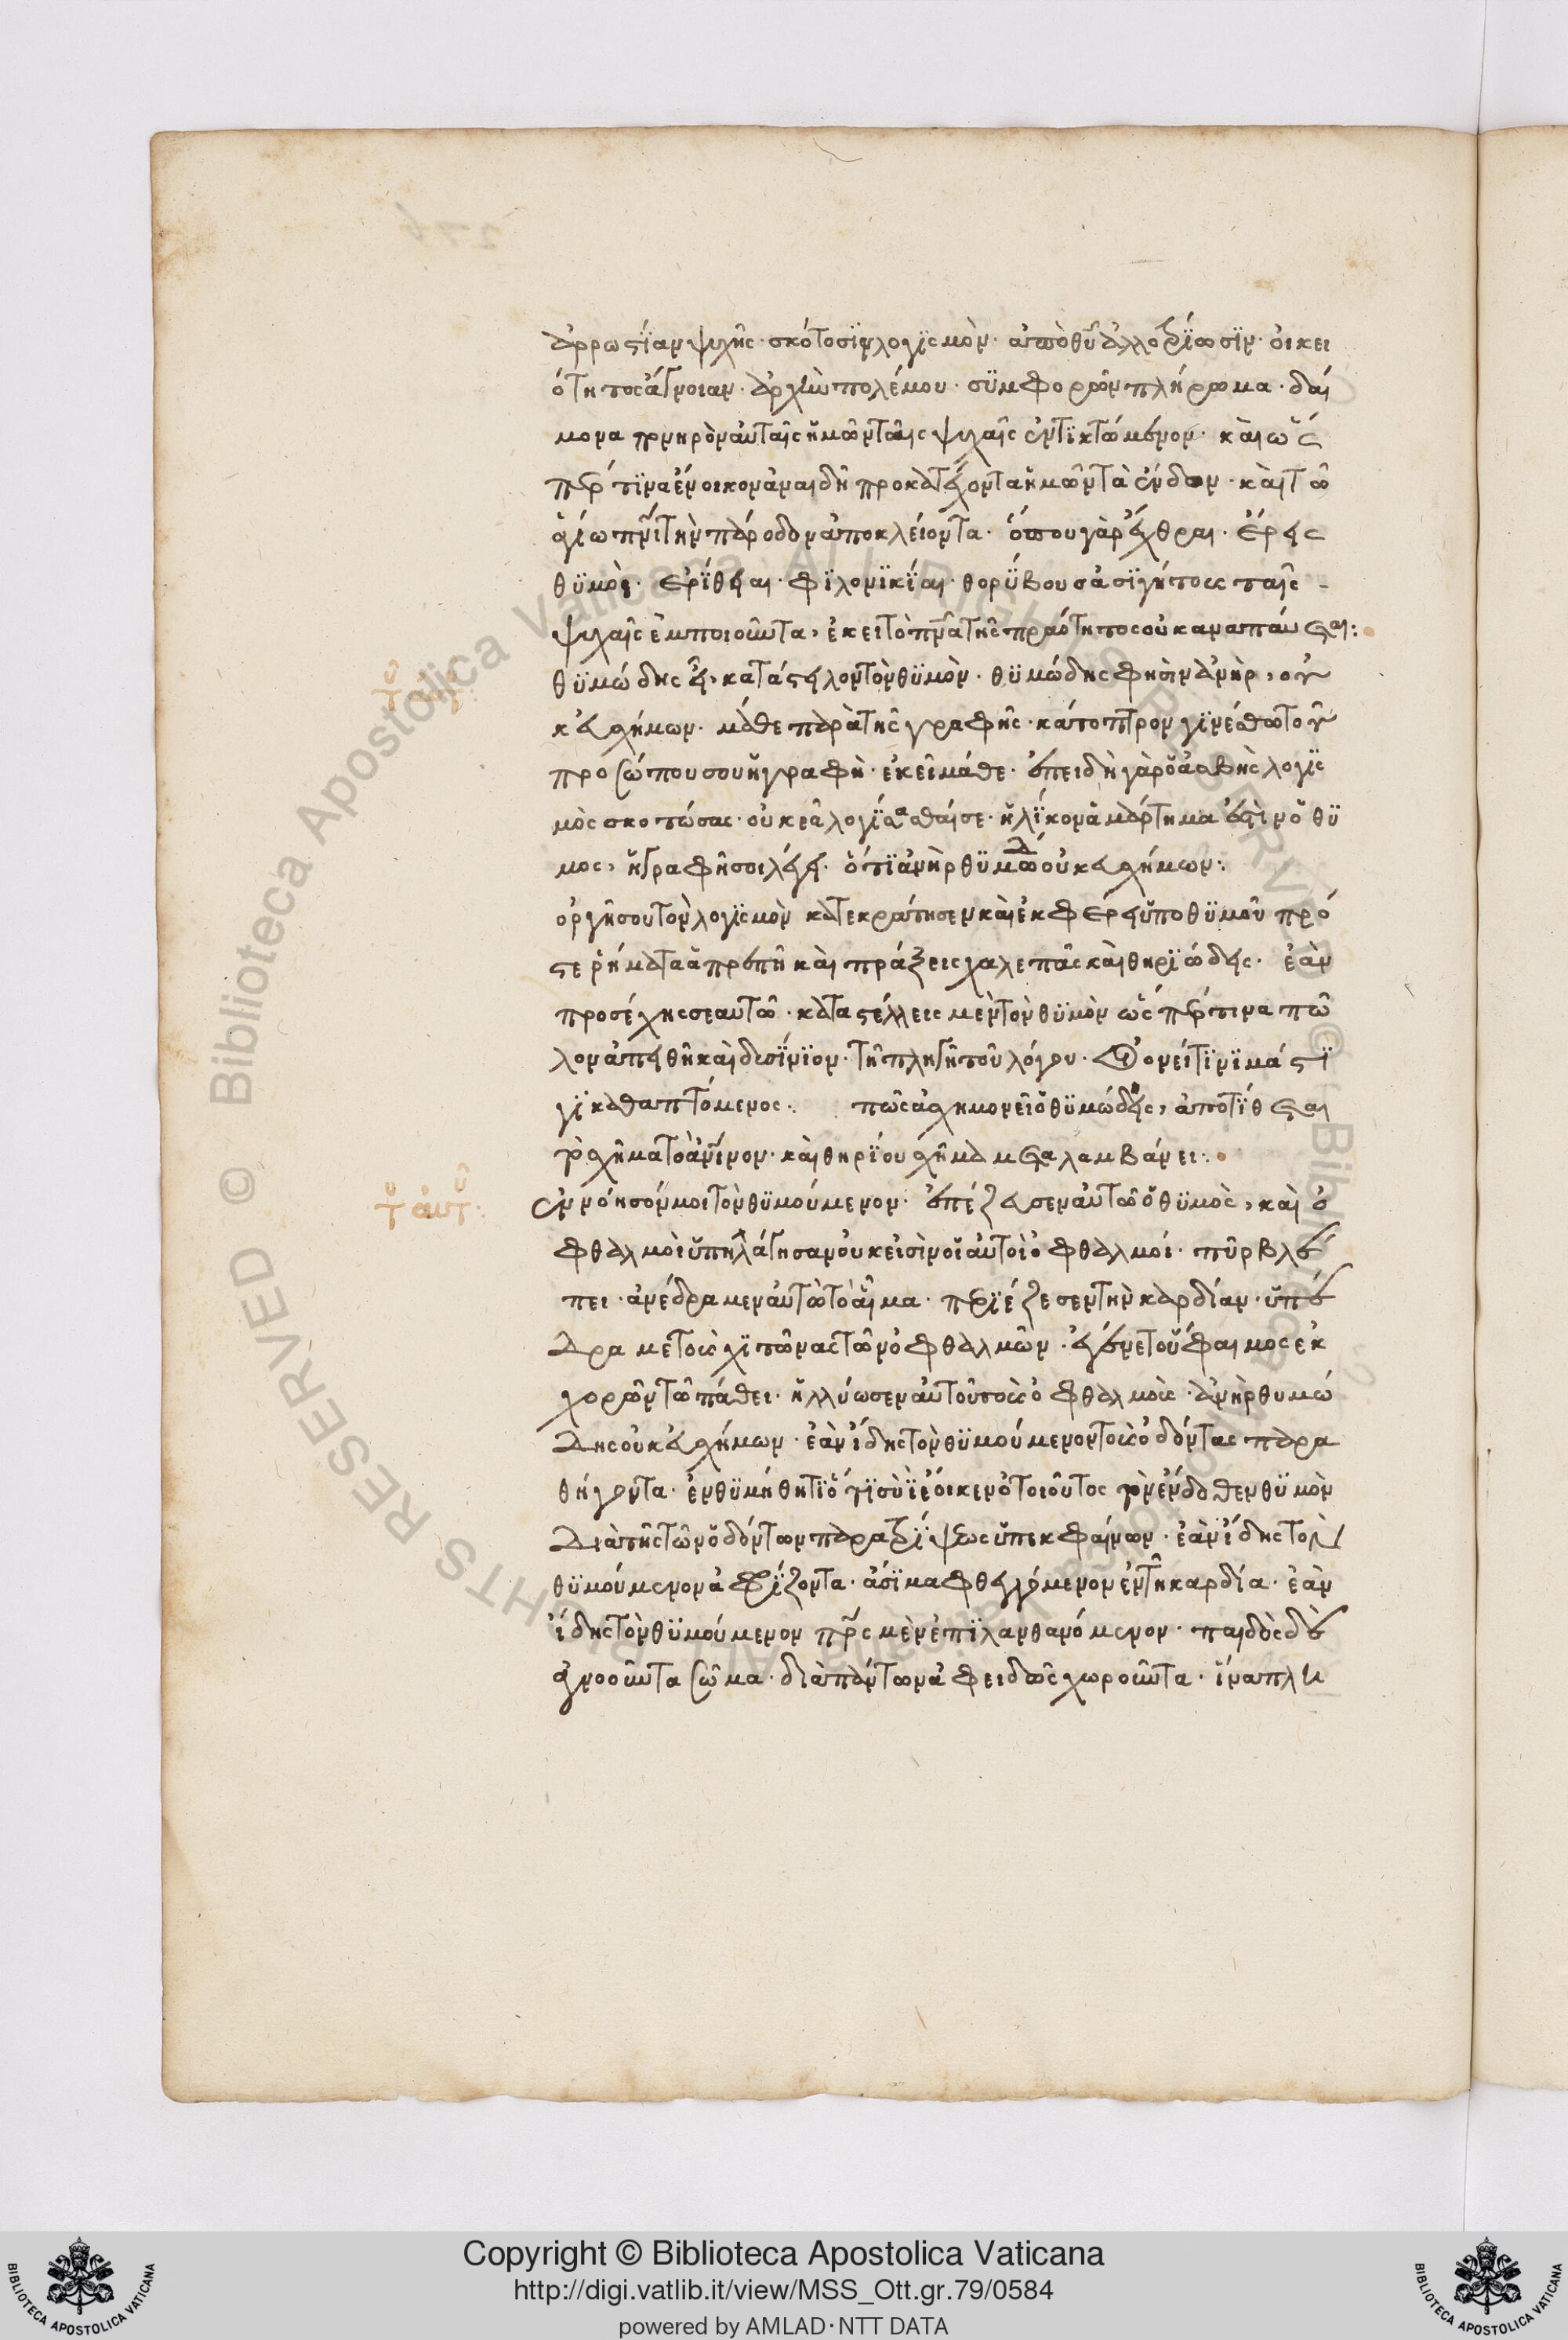 ἀρρωστίαν ψυχῆς· σκότοσιν λογισμὸν· ἀπὸ θῦ ἀλλοτρίωσιν· οἰκει
ότητος ἄγνοιαν· ἀρχὴν πολέμου· συμφορῶν πλήρωμα· δαί
μονα πονηρὸν αὐταῖς ἡμῶν ταῖς ψυχαῖς ἐντικτώμενον· καὶ ὥς
περ τινα ἔνοικον ἀναιδῆ προκατέχοντα ἡμῶν τὰ ἔνδον· καὶ τῶ
ἁγίω πνι τὴν πάροδον ἀποκλείοντα· ὅπου γὰρ ἔχθραι· ἔρεις
θυμοὶ· ἐρίθειαι· φιλονικίαι· θορύβους ἀσιγήτους ταῖς
ψυχαῖς ἐμποιοῦντα, ἐκεῖ τὸ πνα τῆς πραότητος οὐκ αναπαύεται:
θυμώδης εἶ, κατάστειλον τὸν θυμὸν· θυμώδης φησὶν ἀνὴρ, οὐ
κ εὐσχήμων· μάθε παρὰ τῆς γραφῆς· κάτοπτρον γινέσθω τοῦ
προσώπου σου ἡ γραφὴ· ἐκεῖ μάθε· ἐπειδὴ γὰρ ὁ ἀσεβὴς λογισ
μὸς σκοτώσας· οὐκ ἐᾶ λογίσασθαί σε· ἡλίκον ἁμάρτημα ἐστὶν ὁ θυ
μος, ἡ γραφή σοι λέγει· ὅτι ἀνὴρ θυμώδ οὐκ εὐσχήμων:
ὀργῆ σου τὸν λογισμὸν κατεκράτησεν καὶ ἐκφέρει ὑπὸ θυμοῦ πρό
ς τε ῥήματα ἀπρεπῆ καὶ πράξεις χαλεπὰς καὶ θηριώδεις· ἐὰν
προσέχης σεαυτῶ· καταστέλλεις μὲν τὸν θυμὸν ὥσπερ τινα πῶ
λον ἀπειθῆ καὶ δεσίνιον· τῆ πληγῆ τοῦ λόγου· οἱονεί τινι μάστι
γι καθαπτόμενος:. πῶς ἀσχημονεῖ ὁ θυμώδης, ἀποτίθεται
τὸ σχῆμα τὸ ἀνινον· καὶ θηρίου σχῆμα μεταλαμβάνει:
ἐννόησόν μοι τὸν θυμούμενον· ἐπέζεσεν αὐτῶ ὁ θυμὸς, καὶ ὀ
φθαλμοὶ ὑπηλλάγησαν οὐκ εἰσὶν οἱ αὐτοὶ ὀφθαλμοί· πῦρ βλέ
πει· ἀνέδραμεν αὐτῶ τὸ αἷμα· περιέζεσεν τὴν καρδίαν· ὑπέ
δραμε τοὺς χιτῶνας τῶν ὀφθαλμῶν· ἐγένετο ὕφαιμος ἐκ
χορῶν τῶ πάθει· ἠλλοίωσεν αὐτοῦ τοὺς ὀφθαλμοὺς· ἀνὴρ θυμώ
δης οὐκ εὐσχήμων· ἐὰν ἴδης τὸν θυμούμενον τοὺς ὀδόντας παρα
θήγοντα· ἐνθυμήθητι ὅτι συὶ ἔοικεν ὁ τοιοῦτος τὸν ἔνδοθεν θυμὸν
διὰ τῆς τῶν ὀδόντων παρατρίψεως ὑπεκφαίνων· ἐὰν ἴδης τὸν
θυμούμενον ἀφρίζοντα· ἄσημα φθεγγόμενον ἐν τῆ καρδία· ἐὰν
ἴδης τὸν θυμούμενον πρς μὲν ἐπιλανθανόμενον· παιδὸς δὲ
ἀγνοοῦντα σῶμα· διὰ πάντων ἀφειδῶς χωροῦντα· ἵνα πλη
Copyright © Biblioteca Apostolica Vaticana
http://digi.vatlib.it/view/MSS_Ott.gr.79/0584
powered by AMLAD·NTT DATA